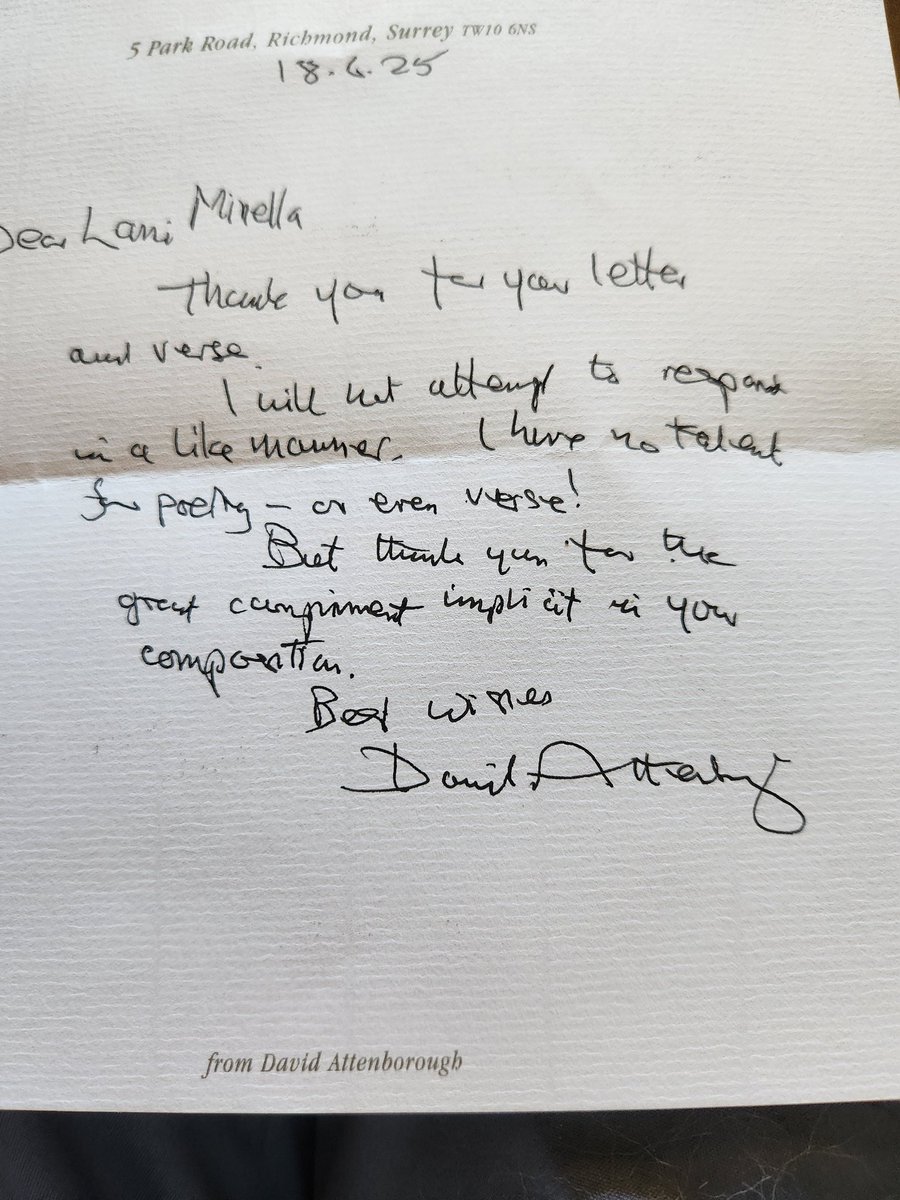 5 Park Road, Richmond, Surrey TW10 6NS
18.6.25
Dear Lani Mirella
Thank you for your letter
and verse.
I will not attempt to respond
in a like manner. I have no talent
for poetry – or even verse!
But thank you for the
great compliment implicit in your
composition.
Best wishes
David Attenborough
from David Attenborough